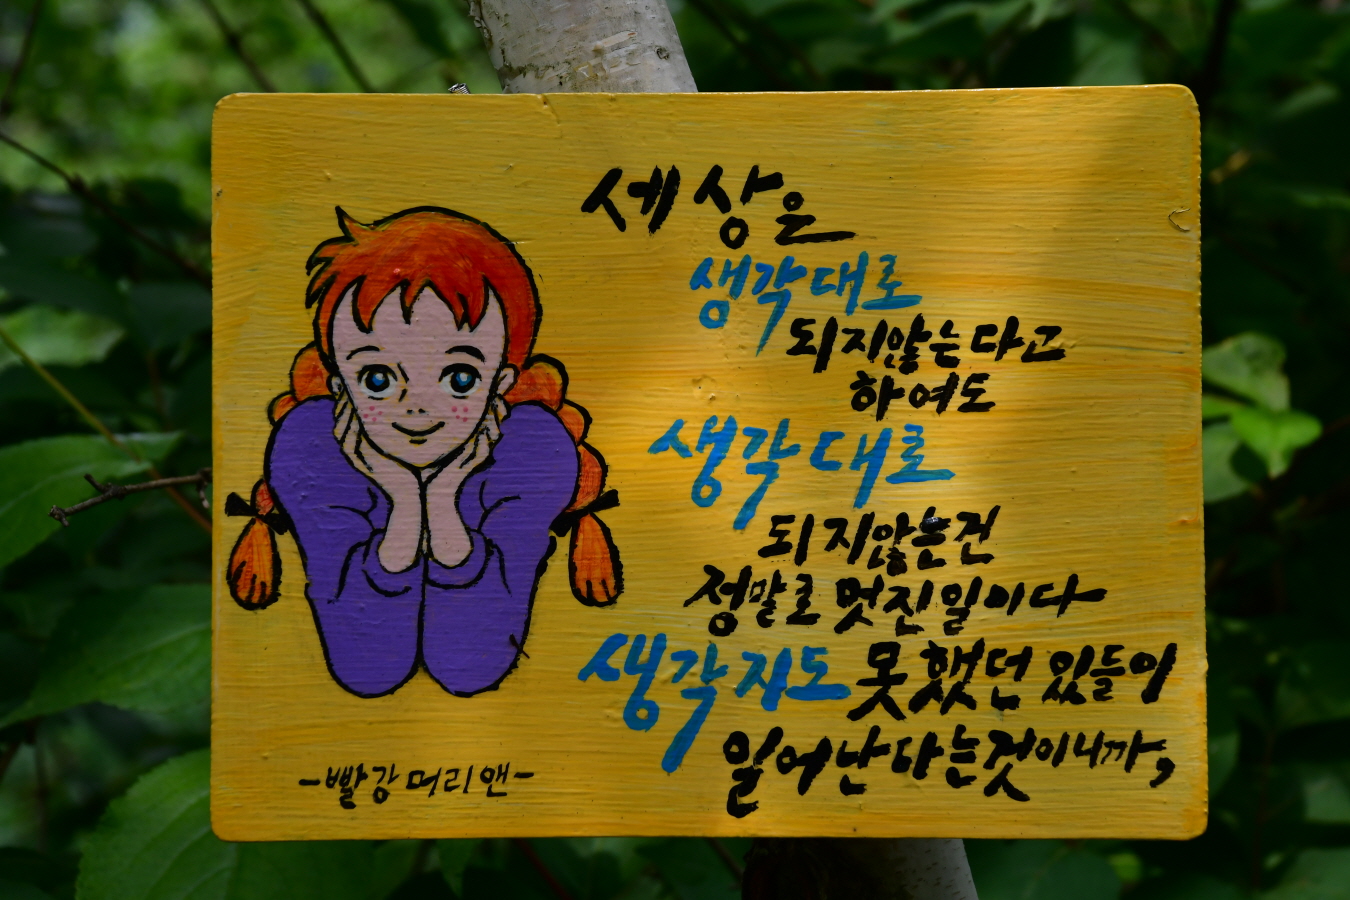 세상은
생각대로
되지않는다고
하여도
생각대로
되지않는건
정말로 멋진일이다
생각지도 못했던 있들이
일어난다는것이니까,
-빨강머리앤-